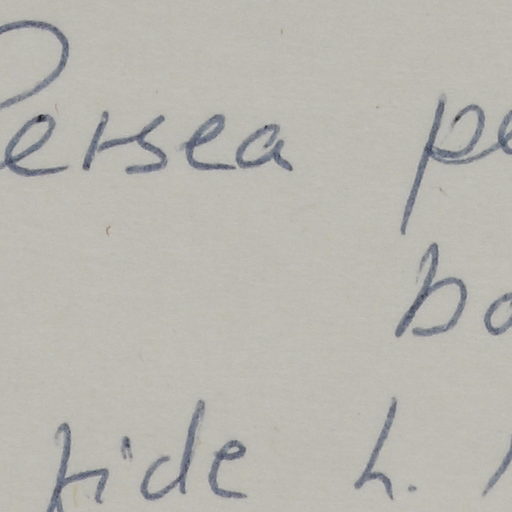 Persea pe
bo
fide h.